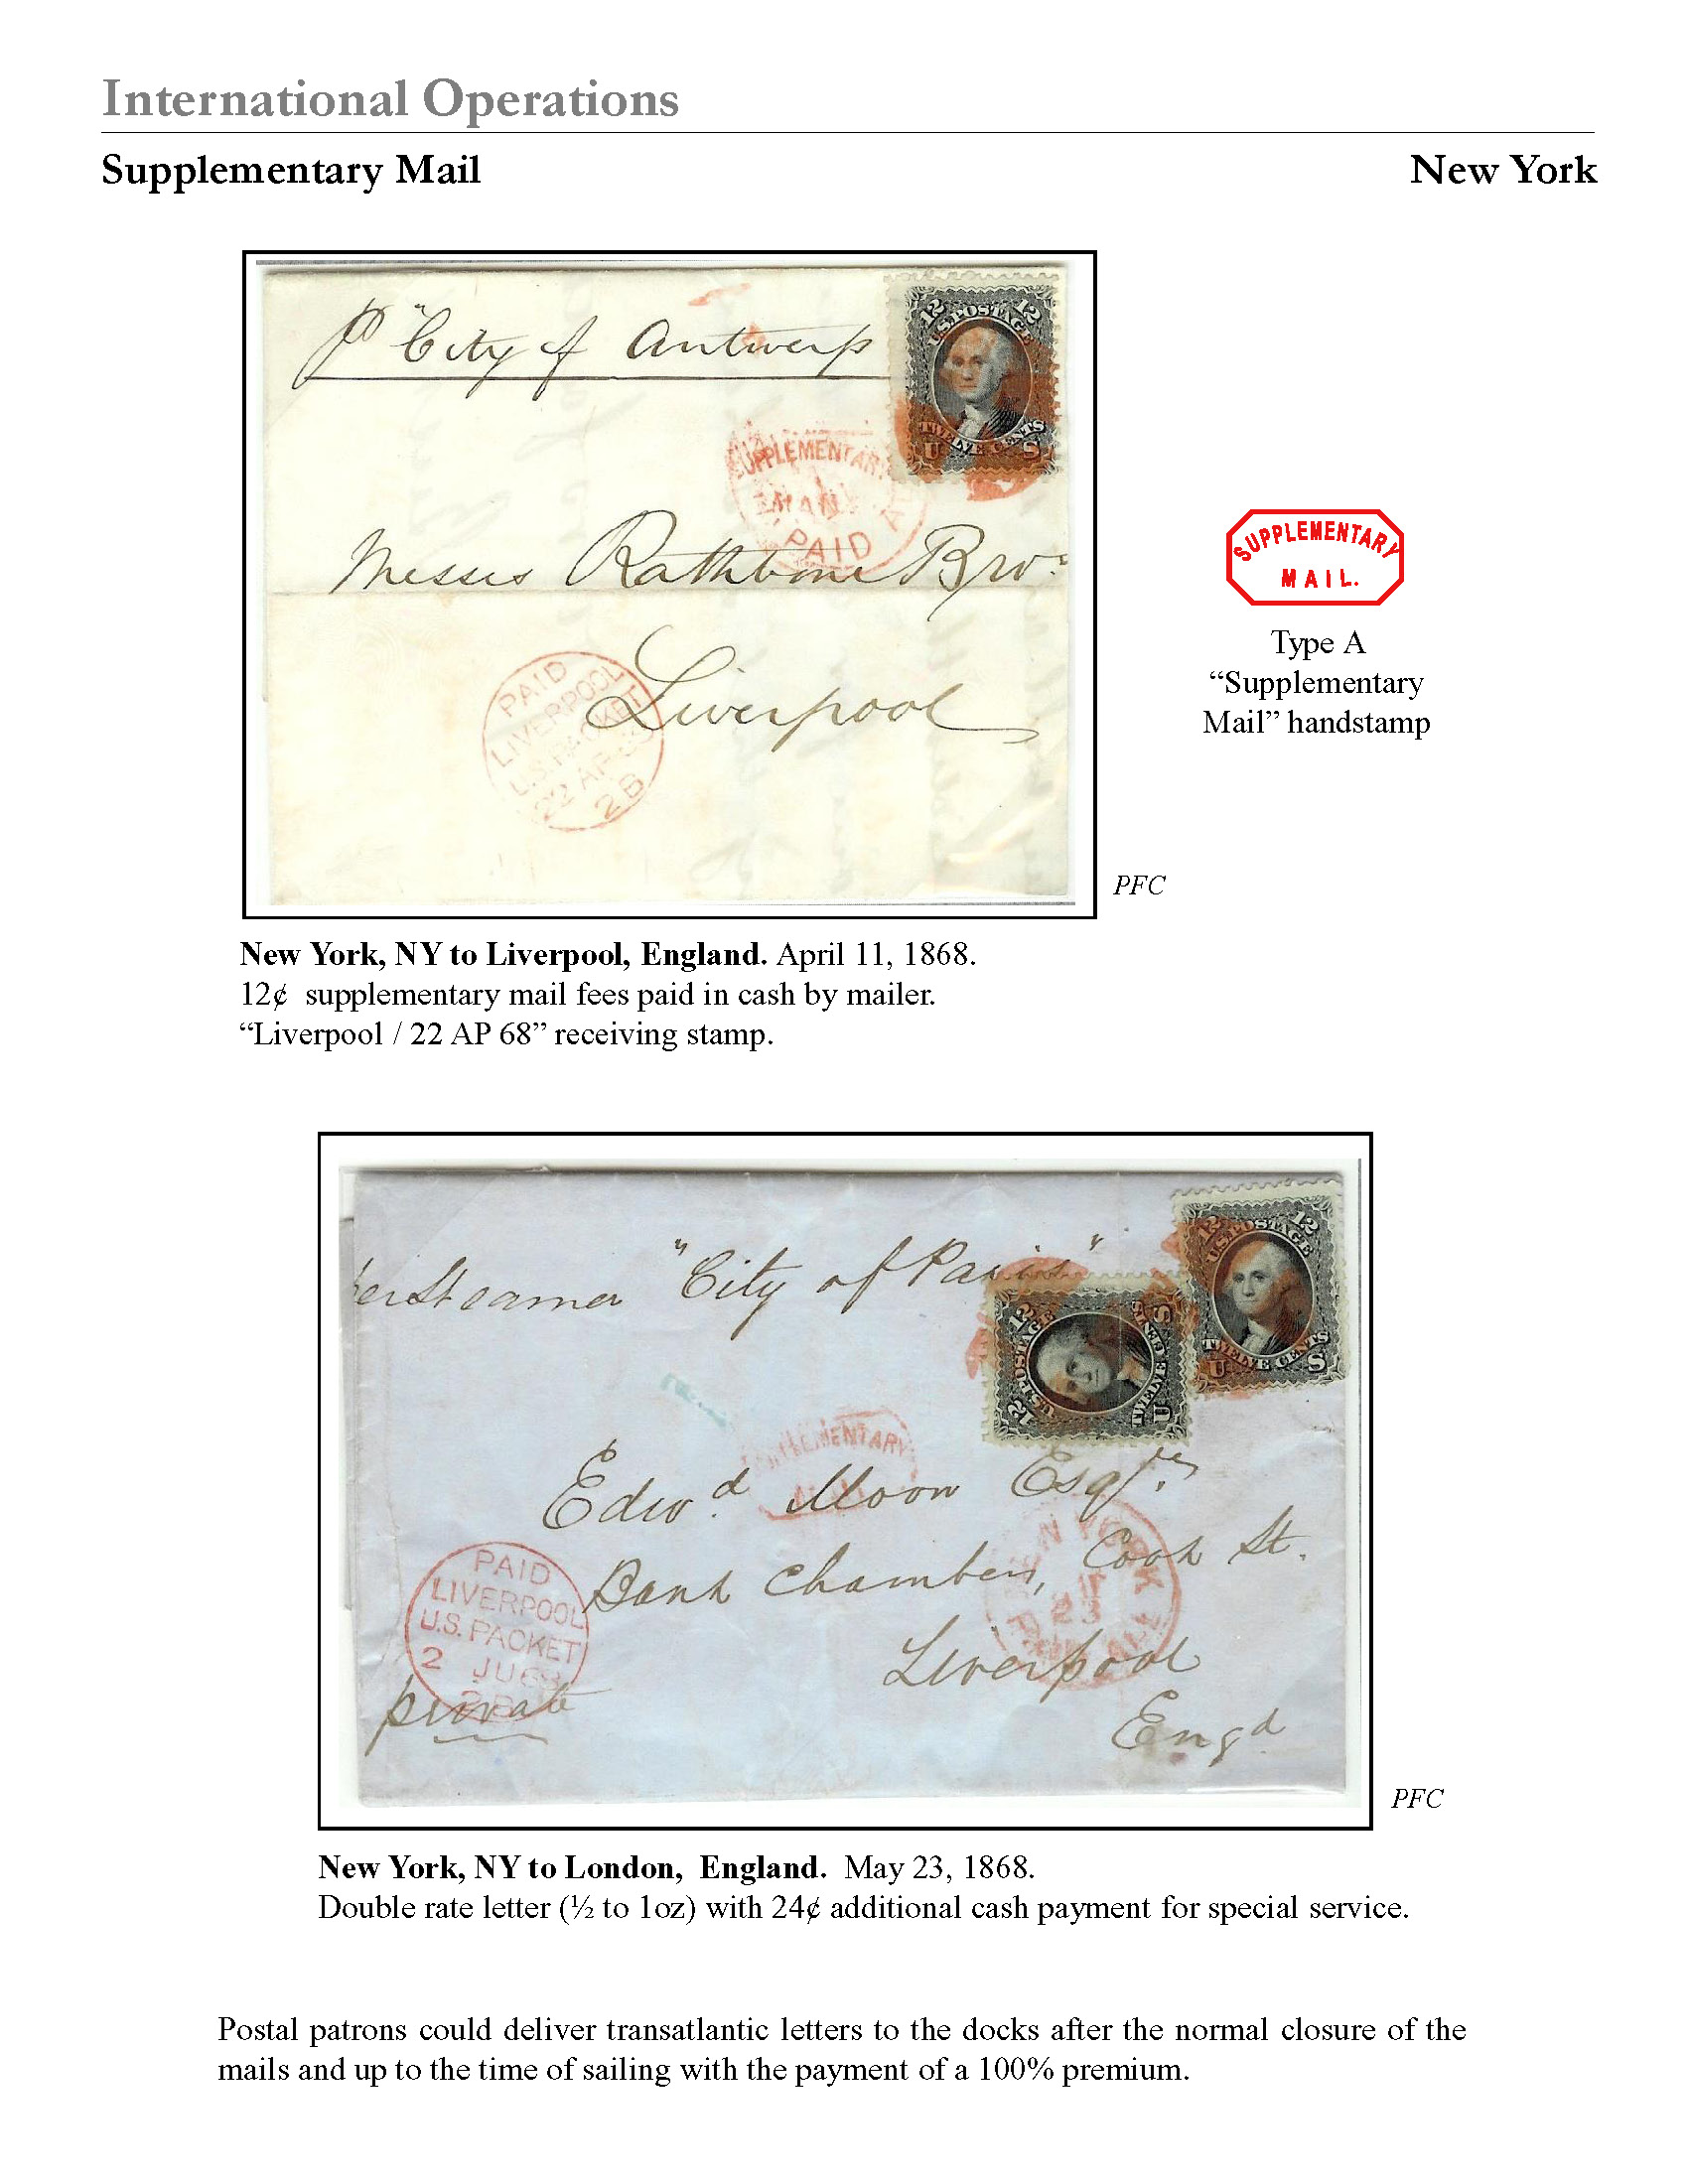 International Operations
Supplementary Mail New York
P "City of Antwerp
12 12
U.S. POSTAGE
TWELVE CENTS
U S
SUPPLEMENTARY
MAIL
PAID
Messrs Rathbone Bros
Liverpool
PAID
LIVERPOOL
U.S. PACKET
22 AP 68
2 B
SUPPLEMENTARY
MAIL.
Type A
“Supplementary
Mail” handstamp
PFC
New York, NY to Liverpool, England. April 11, 1868.
12¢ supplementary mail fees paid in cash by mailer.
“Liverpool / 22 AP 68” receiving stamp.
per Steamer "City of Paris"
12 12
U.S. POSTAGE
TWELVE CENTS
U S
12 12
U.S. POSTAGE
TWELVE CENTS
U S
SUPPLEMENTARY
Edwd Moon Esqre
Bank Chambers, Cook St.
Liverpool
Engd
YORK
23
PAID
LIVERPOOL
U.S. PACKET
2 JU 68
private
PFC
New York, NY to London, England. May 23, 1868.
Double rate letter (½ to 1oz) with 24¢ additional cash payment for special service.
Postal patrons could deliver transatlantic letters to the docks after the normal closure of the
mails and up to the time of sailing with the payment of a 100% premium.